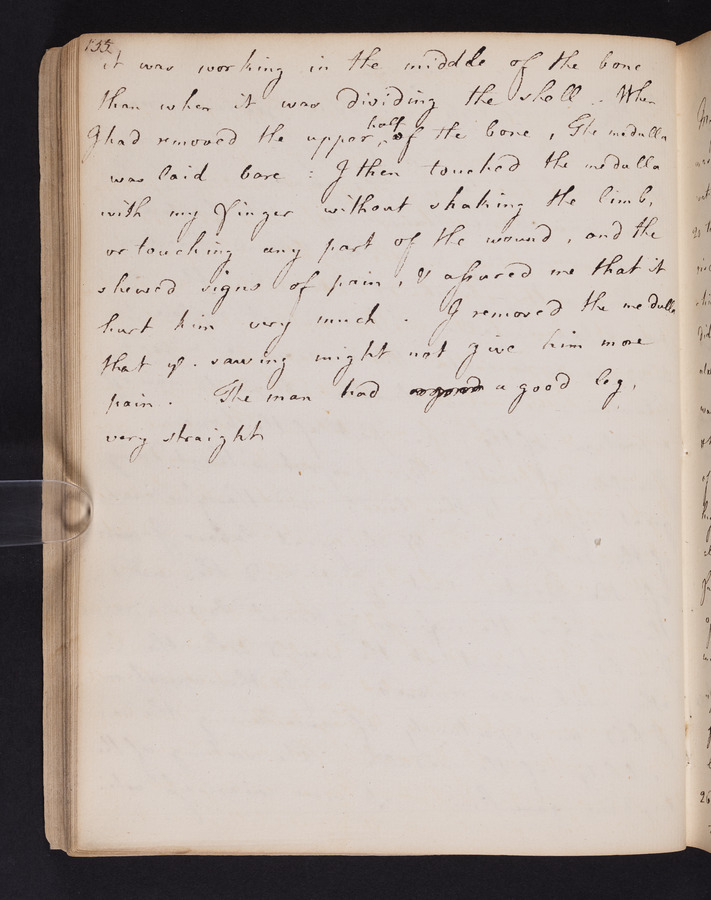 155
it was working in the middle of the bone
than when it was dividing the shell. When
I had removed the upper half of the bone, The medulla
was laid bare: I then touched the medulla
with my finger without shaking the limb,
or touching any part of the wound, and the
shewed signs of pain, & assured me that it
hurt him very much. I removed the medulla
that ye. sawing might not give him more
pain. The man had a good leg,
very straight